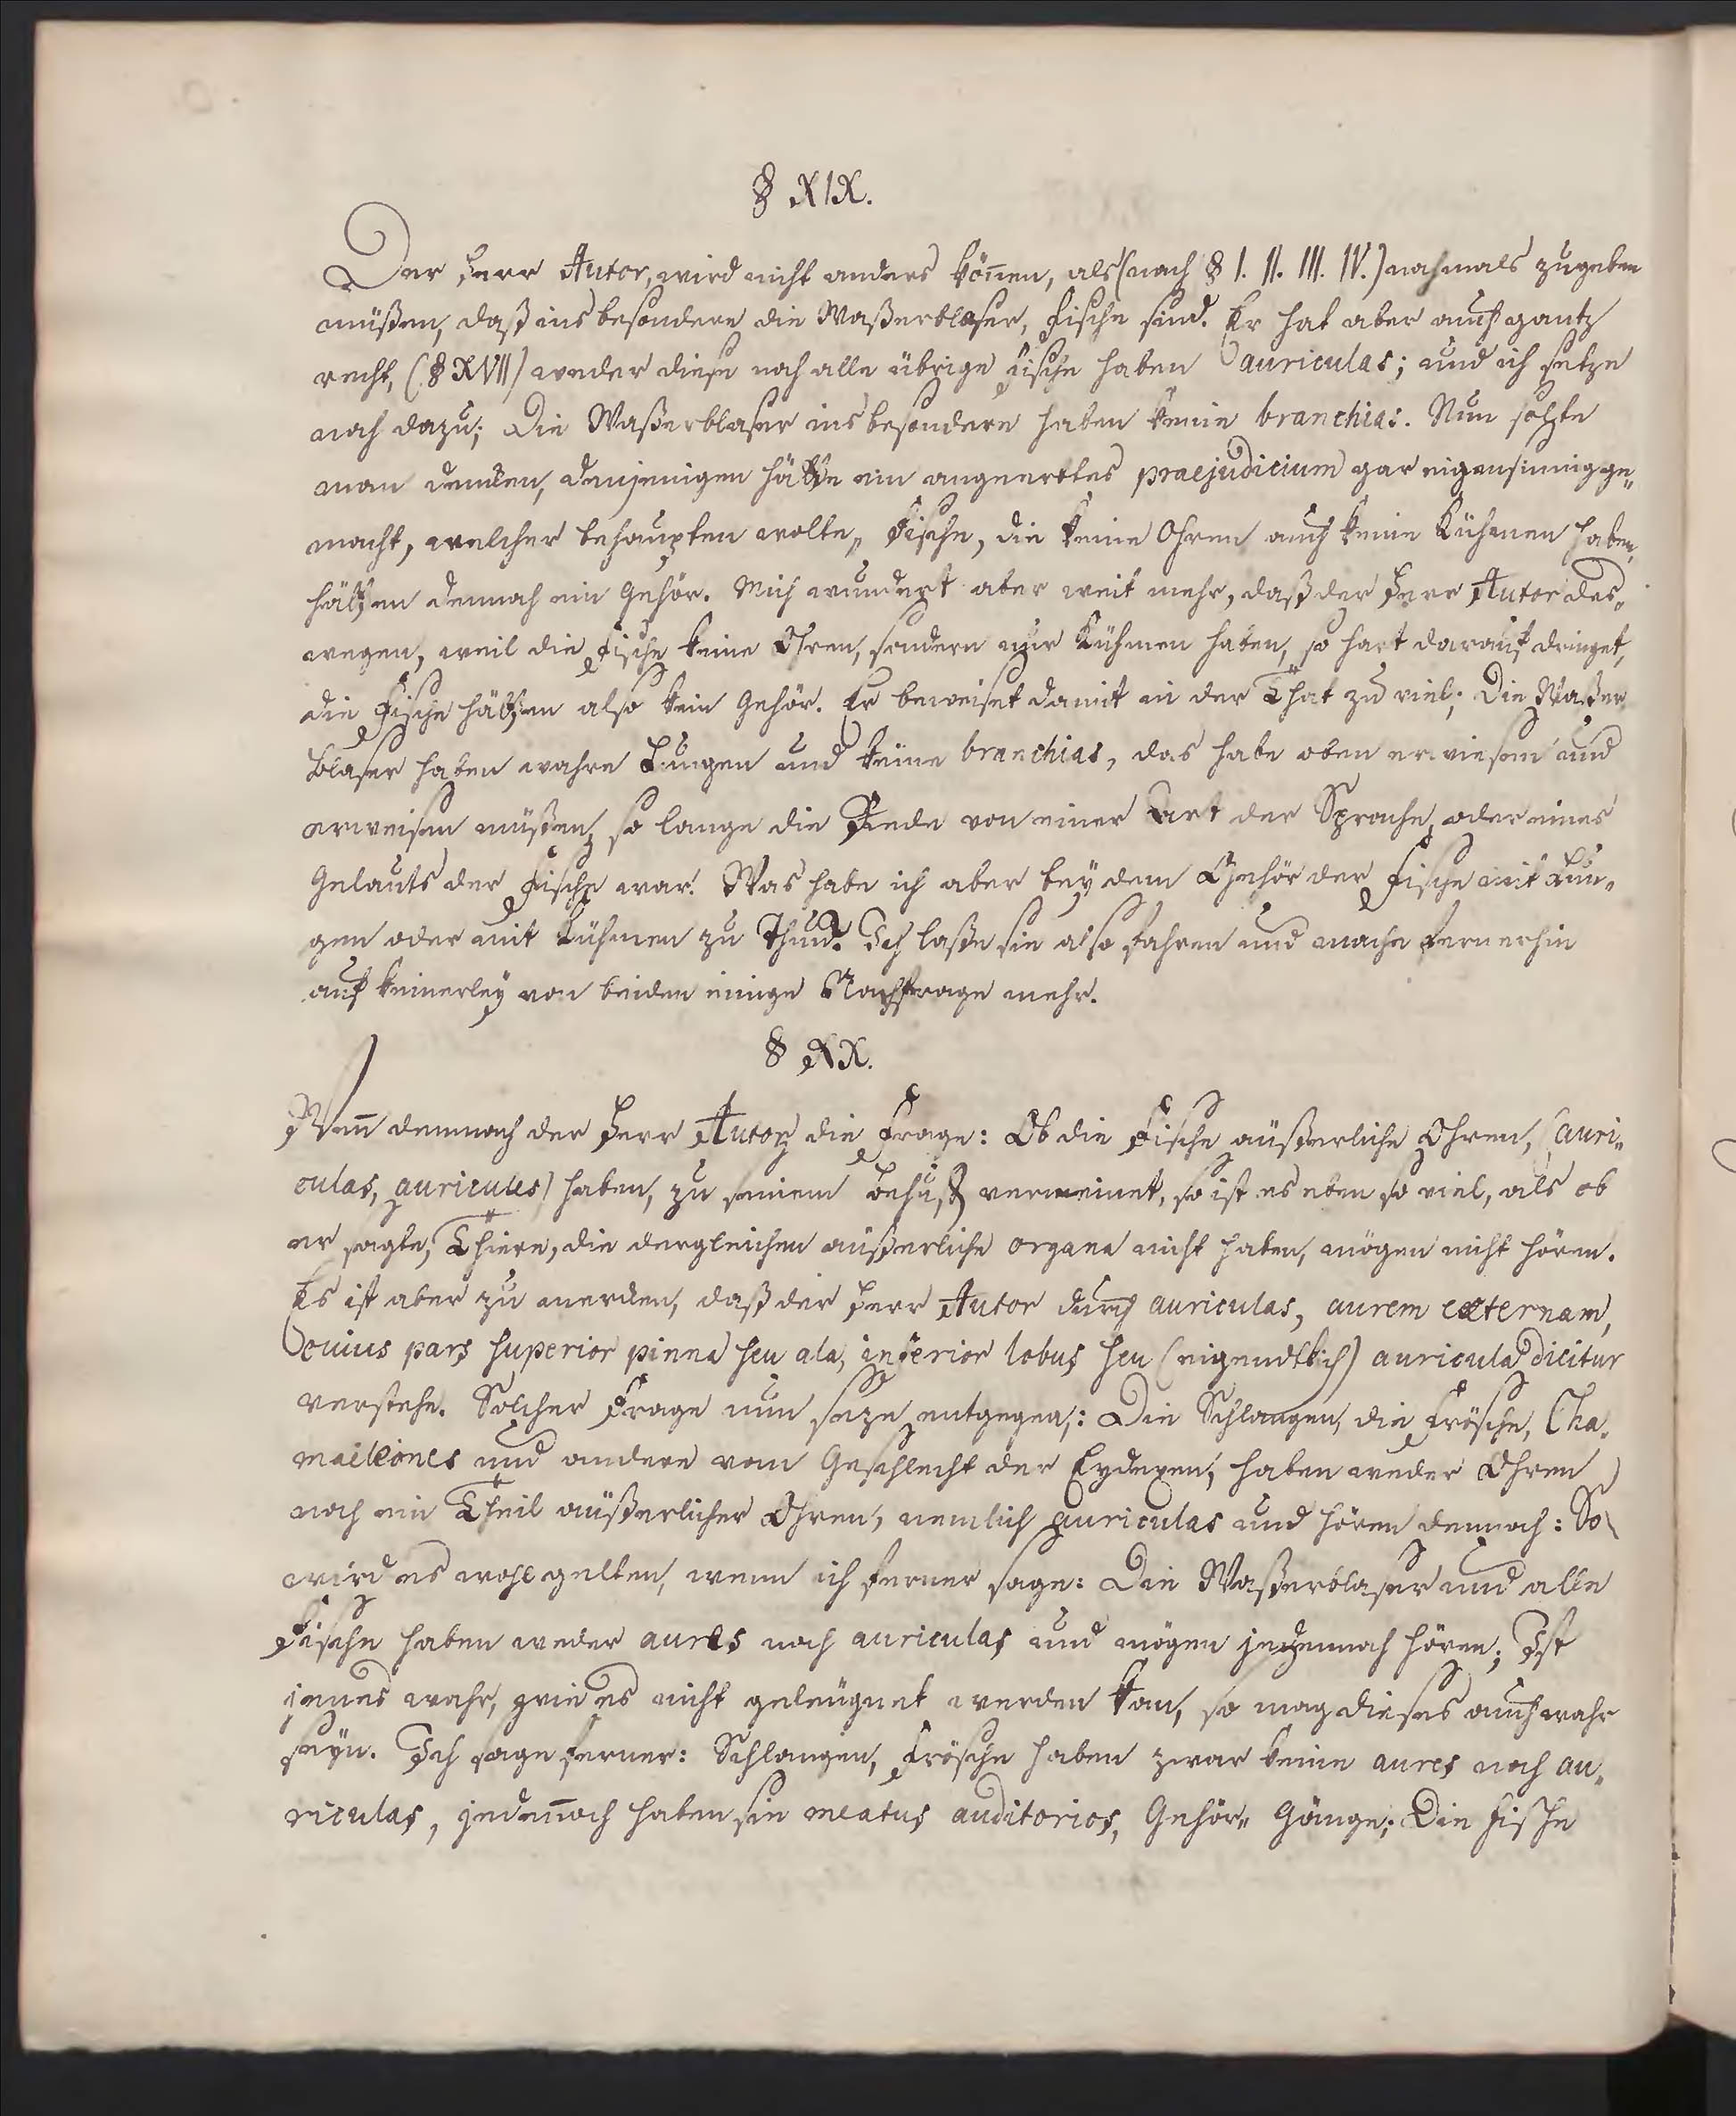 § XIX.
Der Herr Autor, wird nicht anders können, als (nach § I. II. III. IV.) nochmals zugeben
müßen, daß ins besondere die Waßerblaser, Fische sind. Er hat aber auch gantz
recht, (§ XVII) weder diese noch alle übrige Fische haben auriculas; und ich setze
noch dazu; Die Waßerblaser ins besondere haben keine branchias. Nun sollte
man denken, denjenigen hätte ein angeerbtes praejudicium gar eigensinnig ge„
macht, welcher behaupten wolte, Fische, die keine Ohren auch keine Kühmen haben,
hätten dennoch ein Gehör. Mich wundert aber weit mehr, daß der Herr Autor des„
wegen, weil die Fische keine Ohren, sondern nur Kühmen haben, so hart darauf dringet,
die Fische hätten also kein Gehör. Er beweiset damit in der That zu viel; Die Waßer
blaser haben wahre Lungen und keine branchias, das habe oben erwiesen und
erweisen müßen, so lange die Rede von einer Art der Sprache, oder eines
Gelauts der Fische war. Was habe ich aber bey dem Gehör der Fische mit Lun„
gen oder mit Kühmen zu thun? Ich laße sie also fahren und mache fernerhin
auf keinerley von beiden einige Nachfrage mehr.
§ XX.
Weñ demnach der Herr Autor die Frage: Ob die Fische äußerliche Ohren, (auri„
culas, auricules) haben, zu seinem Behuf verneinet, so ist es eben so viel, als ob
er sagte, Thiere, die dergleichen äußerliche organa nicht haben, mögen nicht hören.
Es ist aber zu merken, daß der Herr Autor durch auriculas, aurem externam,
cuius pars superior pinna seu ala, inferior lobus seu (eigendtlich) auricula dicitur
verstehe. Solcher Frage nun seze entgegen: Die Schlangen, die Frösche, Cha„
maeleones und andere vom Geschlecht der Eydexen, haben weder Ohren
noch ein Theil äußerlicher Ohren, nemlich auriculas und hören dennoch: So
wird es wohl gelten, wenn ich ferner sage: Die Waßerblaser und alle
Fische haben weder aures noch auriculas und mögen jedennoch hören; Ist
jenes wahr, wie es nicht geleugnet werden kan, so mag dieses auch wahr
seyn. Ich sage ferner: Schlangen, Frösche haben zwar keine aures noch au„
riculas, jedeñoch haben sie meatus auditorios, Gehör„ Gänge; Die Fische